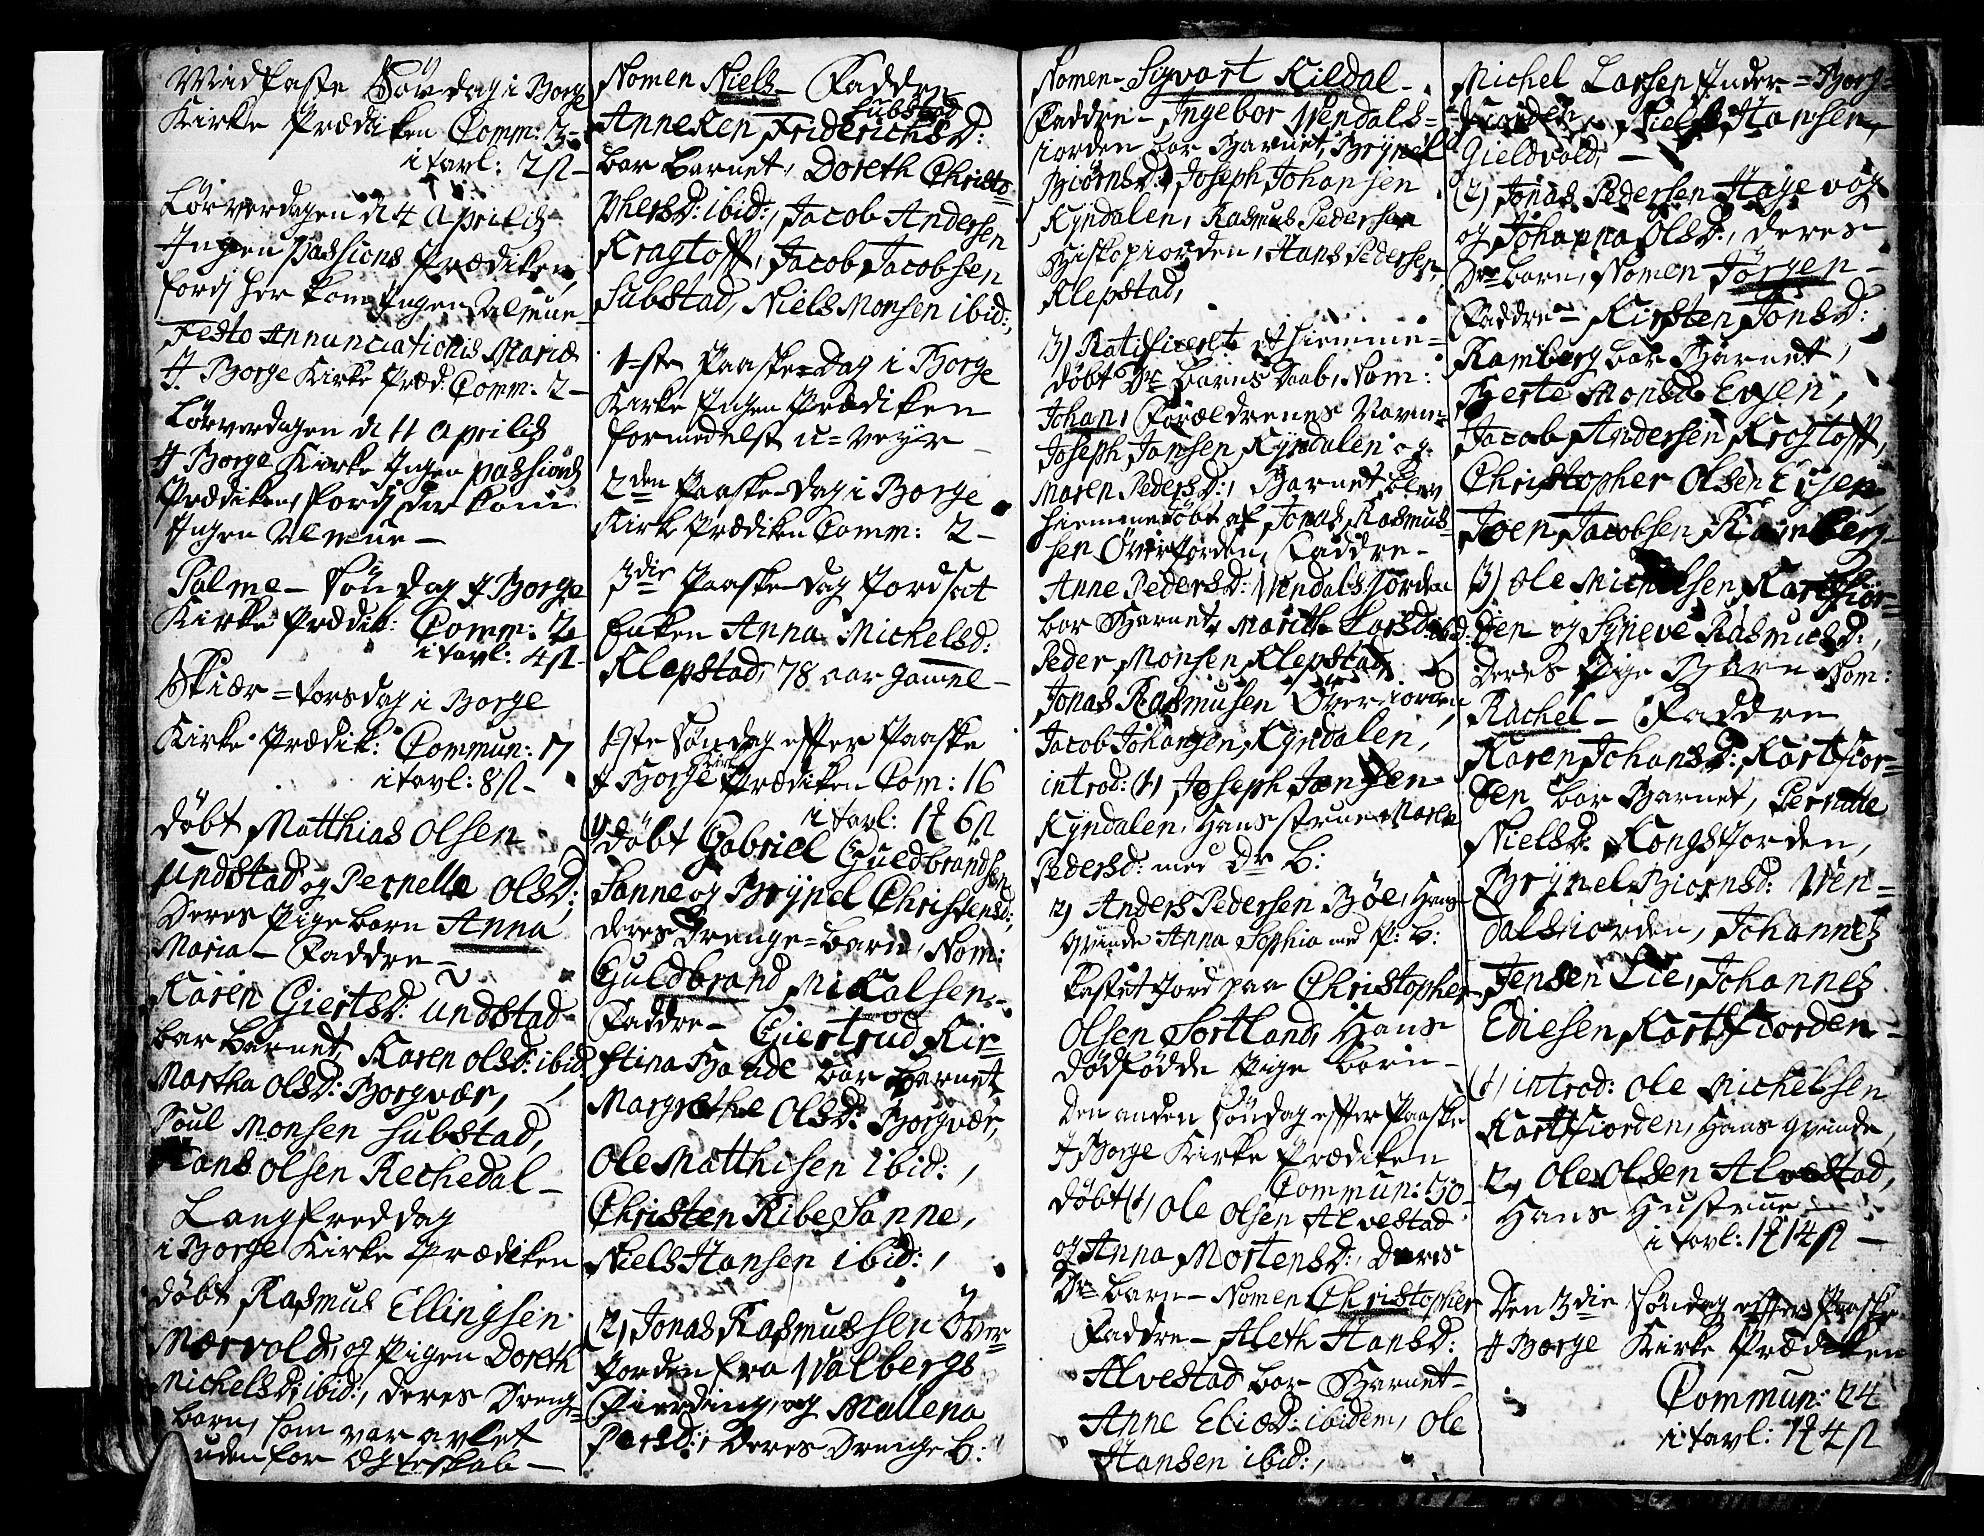 Midfaste Søndag i Borge
Kirke Prædiken Comm: 3
i tavl: 2 ß
Løverdagen d 4 Aprilis
Ingen Passions Prædiken,
fordj her kom Ingen Almue
Festo Annunciationis Mariæ
J Borge Kirke Præd: Comm: 2
Løverdagen d 11 Aprilis
J Borge Kirke Ingen passions
Prædiken, fordj der kom
Ingen Almue
Palme Søndag J Borge
Kirke Prædik: Comm: 2
i tavl: 4 ß
Skiær=torsdag i Borge
Kirke Prædik: Commun: 17
i tavl: 8 ß
døbt Matthias Olsen
Undstad og Pernelle Olsd:
Deres Pige barn Anna
Maria - Faddre
Karen Giertsd: Undstad
bar Barnet, Karen Olsd: ibid
Martha Olsd: Borgvær,
Poul Monsen Substad,
Hans Olsen Rechedal
Langfreddag
i Borge Kirke Prædiken
døbt Rasmus Ellingsen
Mærvold, og Pigen Doreth
Michelsd: ibid:, deres Dreng=
barn, som var avlet
uden for Ægteskab
Nomen Niels - Faddre
Substad
Anneken Friderichsd:
bar barnet, Doreth Christo=
phersd: ibid:, Jacob Andersen
Kragtoff, Jacob Jacobsen
Substad, Niels Monsen ibid:,
1ste Paaske=Dag i Borge
Kirke Ingen Prædiken
formedelst u=veyr
2den Paaske-Dag i Borge
Kirke Prædiken Comm: 2
3die Paaske-dag Jordsat
Enken Anna Michelsd:
Klepstad, 78 aar gammel
1ste Søndag efter Paaske
J Borge Kirke Prædiken Com: 16
i tavl: 1 6 ß
1) døbt Gabriel Guldbrandsen
Sanne og Brynel Christensd:,
deres Drenge=barn, Nom:
Guldbrand Mickalsen
Faddre - Giertrud Kir=
stina Baade bar Barnet
Margrethe Olsd: Borgvær,
Ole Matthisen ibid:,
Christen Ribe Sanne,
Niels Hansen ibid:,
(2) Jonas Rasmussen Over=
Jorden fra Valbergs
Fierding, og Mallena
Persd:, Deres Drenge B:
Nomen - Sigvart Kildal
Faddre - Ingebor Vendals=
iorden bar Barnet, Brynel
Biørnsd:, Joseph Johansen
Kyndalen, Rasmus Pedersen
Biskopiorden, Hans Pedersen
Klepstad,
3) Ratificeret et hiemme=
døbt Dr: barns Daab, Nom:
Johan, Forældrenes Navn=
Joseph Jansen Kyndalen og
Maren Pedersd:, Barnet blev
hiemmedøbt af Jonas Rasmus=
sen Øverjorden, Faddre -
Anne Pedersd: Vendalsjorden
bar Barnet, Marith Larsd: ibid:
Peder Monsen Klepstad,
Jonas Rasmusen Øveriorden
Jacob Johansen Kyndalen,
introd: (1) Joseph Jansen
Kyndalen, Hans Hustrue Maren
Pedersd: med Dr B:
2) Anders Pedersen Bøe, Hans
Qvinde Anna Sophia med P: B:
Kastet Jord paa Christopher
Olsen Sortland, Hans
dødfødde Pige barn
Den anden Søndag efter Paaske
J Borge Kirke Prædiken
Commun: 50
døbt (1) Ole Olsen Alvestad
og Anna Mortensd:, Deres
Dr: barn - Nomen Christopher
Faddre - Aleth Hansd:
Alvestad bar Barnet
Anne Eliæd: ibidem, Ole
Hansen ibid:,
Michel Larsen Inder=Borg=
fiorden, Niels Hansen
Gieldvold,
(2) Jonas Pedersen Hagevog
og Johanna Olsd:, deres
Dr: barn, Nomen Jørgen
Faddre - Kirsten Jonsd:
Ramberg bar Barnet,
Berte Monsd: Evjen,
Jacob Andersen Krogtoff,
Christopher Olsen Evjen,
Joen Jacobsen Ramberg
3) Ole Michelsen Kartfior=
den og Syneve Rasmusd:,
Deres Pige Barn Nom:
Rachel - Faddre
Karen Johansd: Kartfior=
den bar Barnet, Pernille
Nielsd: Kongsjorden,
Brynel Biornsd: Ven=
dalsiorden, Johannes
Jensen Lie, Johannes
Ediesen Kartfiorden
(1) introd: Ole Michelsen
Kartfiorden, Hans Qvinde,
2) Ole Olsen Alvestad,
Hans Hustrue
i tavl: 1 14 ß
Den 3die Søndag efter Paaske
J Borge Kirke Prædiken
Commun: 24
i tavl: 1 4 ß